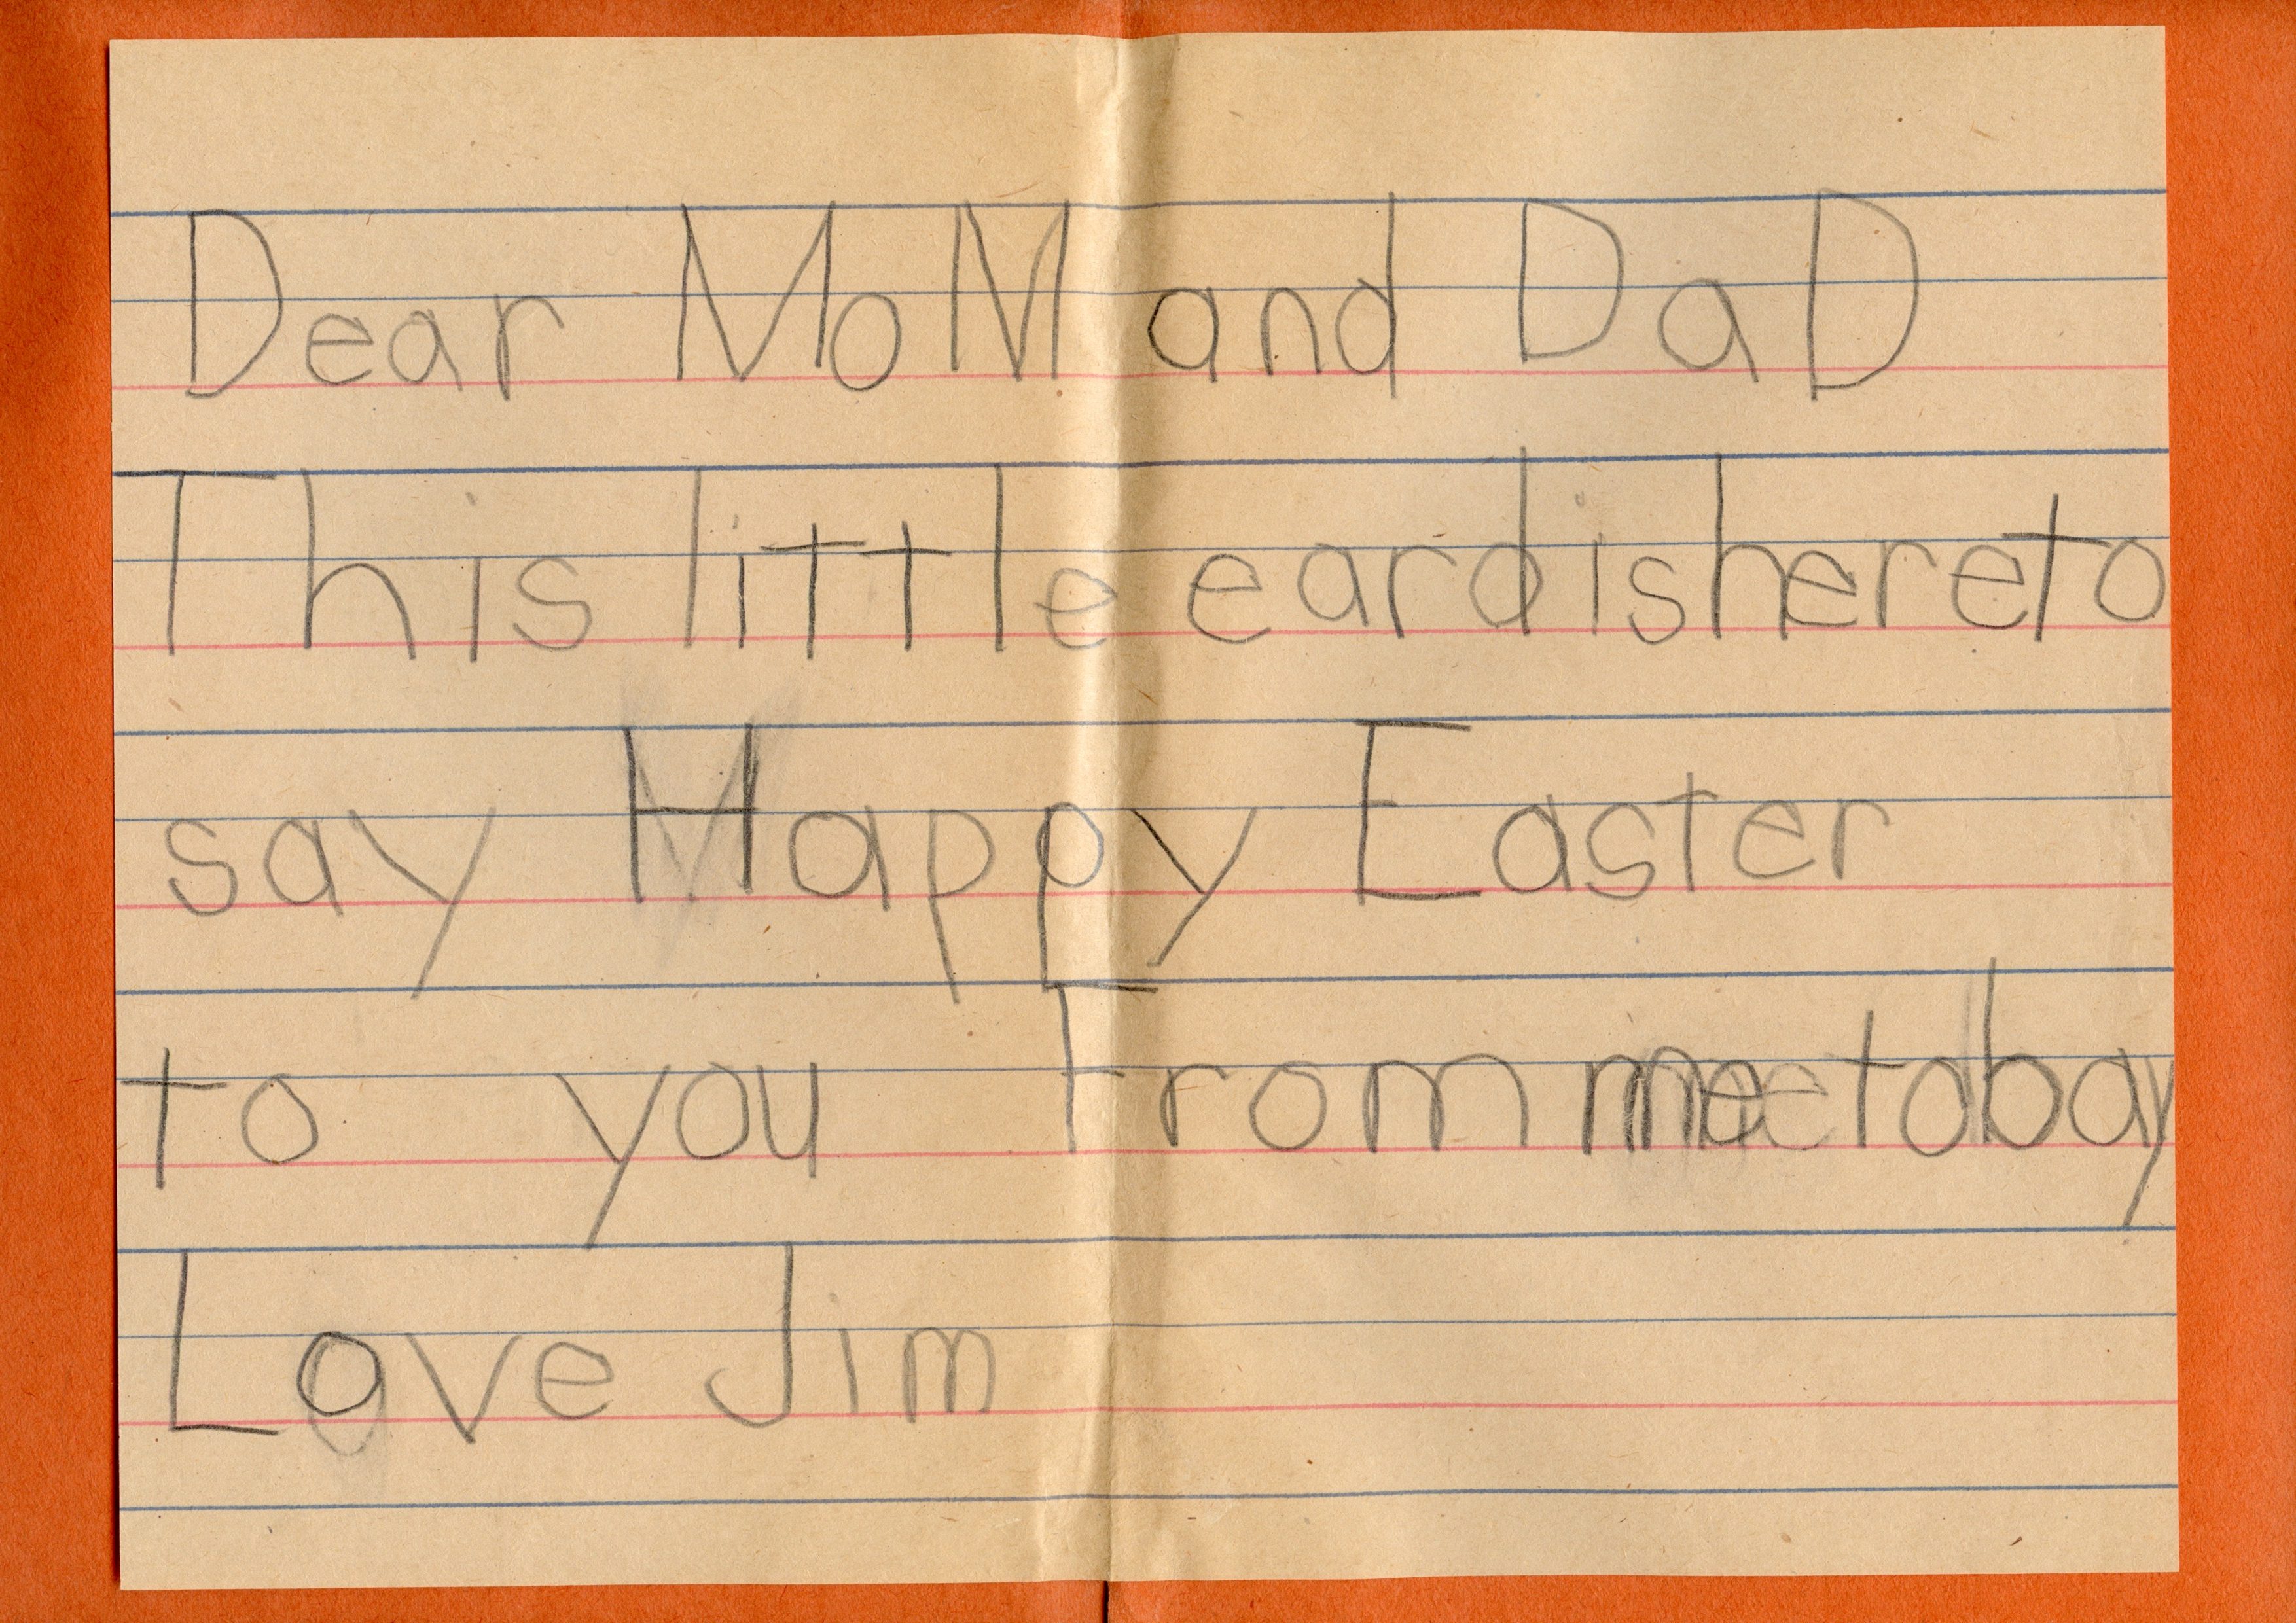 Dear MoM and DaD
This little eardishereto
say Happy Easter
to you From me tobay
Love Jim